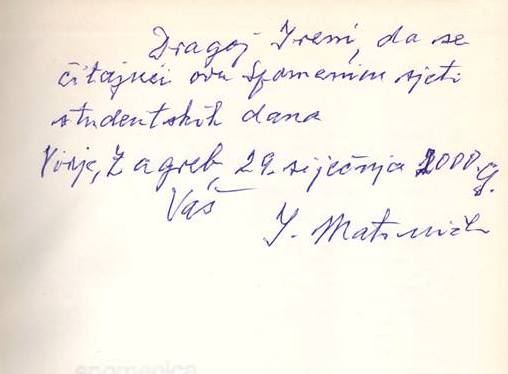 Dragoj Ireni, da se
čitajući ovu Spomenicu sjeti
studentskih dana
Virje, Zagreb, 29. siječnja 2000. g.
Vaš